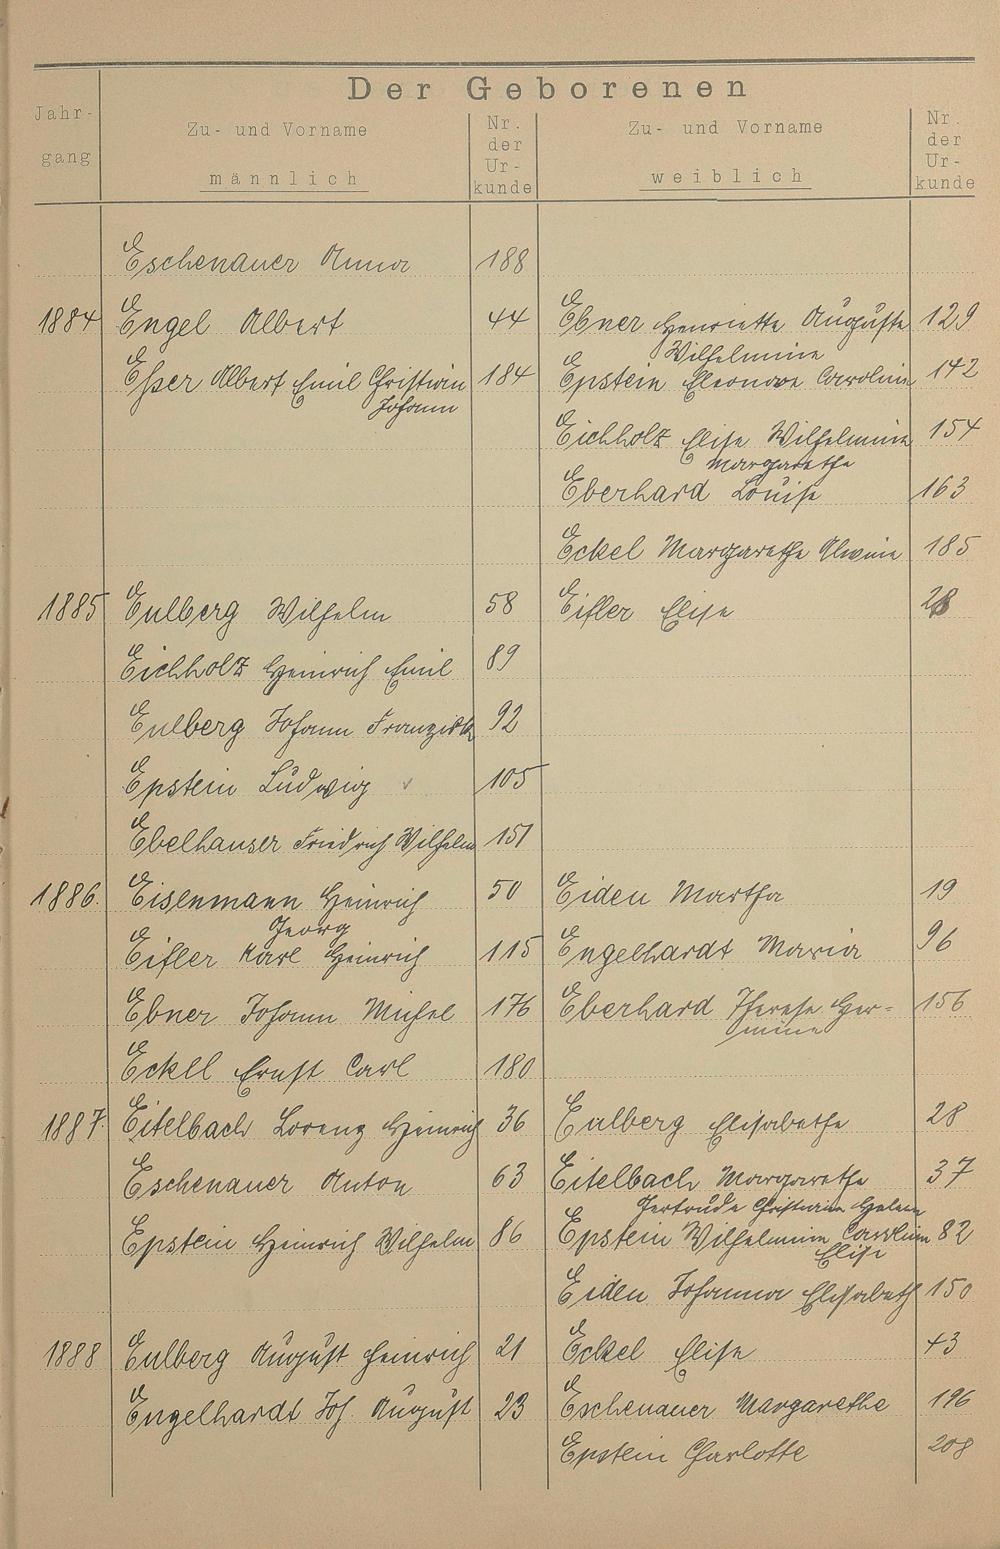 Der Geborenen
Jahr-
gang
Zu- und Vorname
männlich
Nr.
der
Ur-
kunde
Zu- und Vorname
weiblich
Nr.
der
Ur-
kunde
Eschenauer Anna 188
1884 Engel Albert 44 Ebner Henriette Auguste 129
Wilhelmine
Esser Albert Emil Christian 184 Epstein Eleonore Caroline 142
Johann
Eichholz Elise Wilhelmine 154
Margarethe
Eberhard Louise 163
Eckel Margarethe Alwine 185
1885 Eulberg Wilhelm 58 Eifler Elise 28
Eichholz Heinrich Emil 89
Eulberg Johann 92
Epstein Ludwig 105
Ebelhauser Friedrich Wilhelm 151
1886. Eisenmann Heinrich 50 Eiden Martha 19
Georg
Eifler Karl Heinrich 115 Engelhardt Maria 96
Ebner Johann Michel 176 Eberhard Therese Her- 156
mine
Eckel Ernst Carl 180
1887. Eitelbach Lorenz Heinrich 36 Eulberg Elisabethe 28
Eschenauer Anton 63 Eitelbach Margarethe 37
Gertrude Christiane Helene
Epstein Heinrich Wilhelm 86 Epstein Wilhelmine Caroline 82
Elise
Eiden Johanna Elisabeth 150
1888 Eulberg August Heinrich 21 Eckel Elise 43
Engelhardt Joh. August 23 Eschenauer Margarethe 196
Epstein Charlotte 208